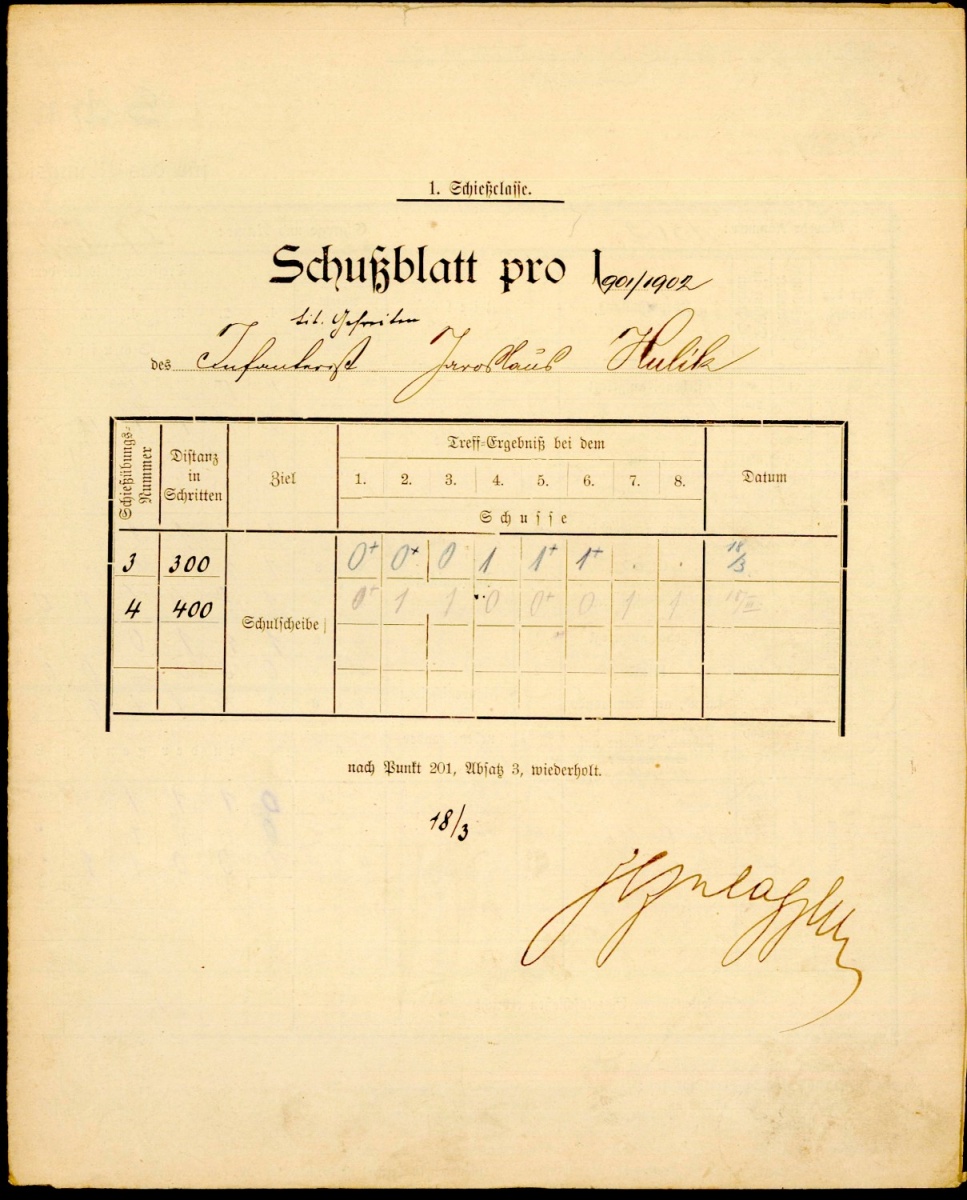 1. Schießclasse.
Schußblatt pro 1901/1902
tit. Gefreiten
des Infanterist Jaroslaus Hulik
Schießübungs-Nummer
Distanz in Schritten
Ziel
Treff-Ergebniß bei dem
1. 2. 3. 4. 5. 6. 7. 8.
Schusse
Datum
3 300 0+ 0+ 0 1 1+ 1+ . . 18/3.
4 400 0+ 1 1 0 0+ 0 1 1
Schulscheibe
nach Punkt 201, Absatz 3, wiederholt.
18/3